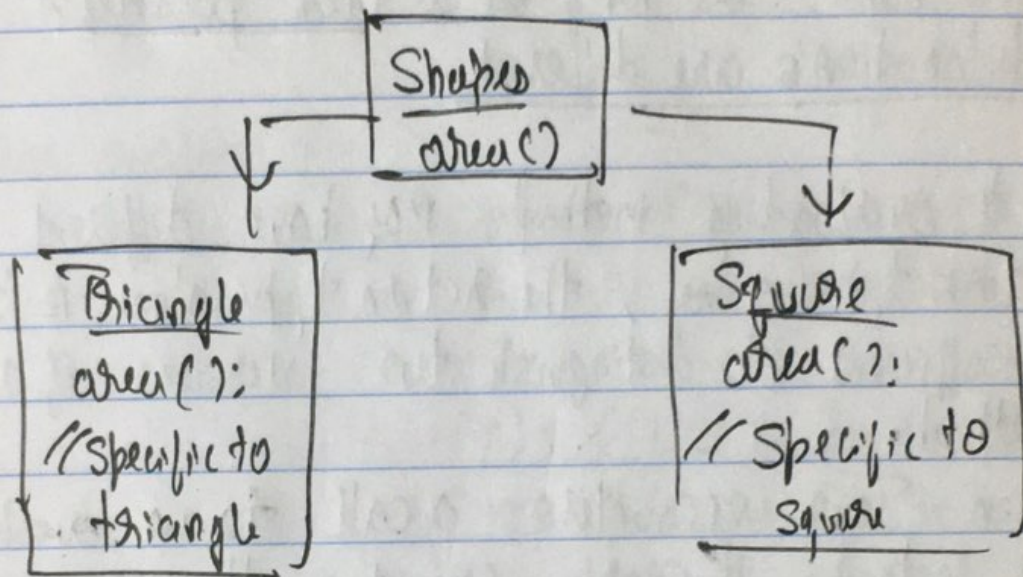 Shapes
area()
Triangle
area():
//Specific to
triangle
Square
area():
// Specific to
square